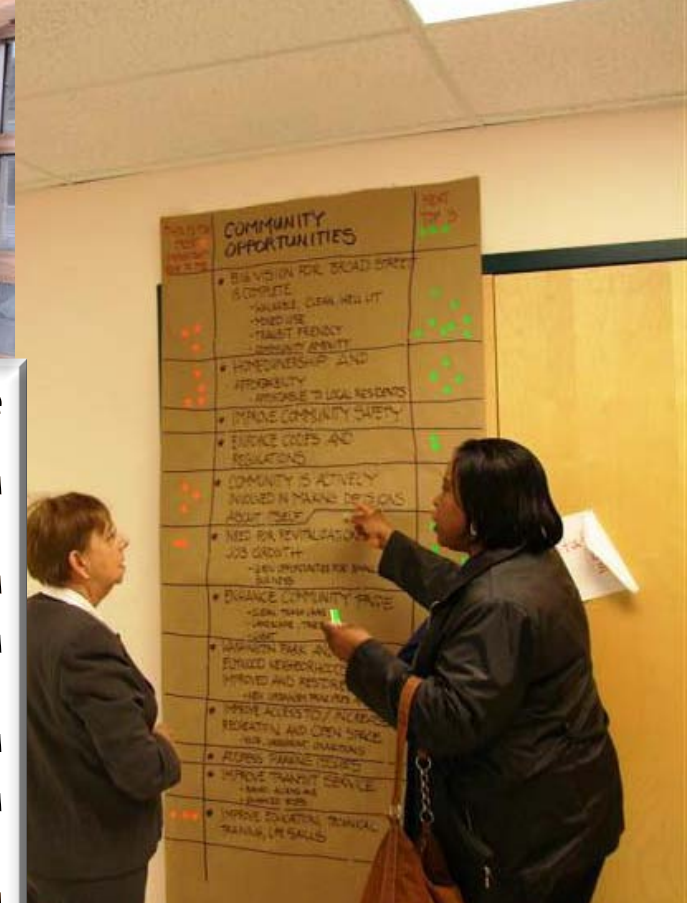 THIS IS THE
MOST
IMPORTANT
ONE TO ME
COMMUNITY
OPPORTUNITIES
NEXT
TOP 3
• BIG VISION FOR BROAD STREET
IS COMPLETE
- WALKABLE, CLEAN, WELL LIT
- MIXED USE
- TRANSIT FRIENDLY
- COMMUNITY AMENITY
• HOMEOWNERSHIP AND
AFFORDABILITY
- AFFORDABLE TO LOCAL RESIDENTS
• IMPROVE COMMUNITY SAFETY
• ENFORCE CODES AND
REGULATIONS
• COMMUNITY IS ACTIVELY
INVOLVED IN MAKING DECISIONS
ABOUT ITSELF
• NEED FOR REVITALIZATION
JOB GROWTH
- NEW OPPORTUNITIES FOR SMALL
BUSINESS
• ENHANCE COMMUNITY PRIDE
- CLEAN
- LANDSCAPE, TREES
- LIGHT
• WASHINGTON PARK AND
ELMWOOD NEIGHBORHOODS
IMPROVED AND RESTORED
- NEW URBANISM PRINCIPLES
• IMPROVE ACCESS TO / INCREASE
RECREATION AND OPEN SPACE
• ADDRESS PARKING ISSUES
• IMPROVE TRANSIT SERVICE
• IMPROVE EDUCATION, TECHNICAL
TRAINING, LIFE SKILLS